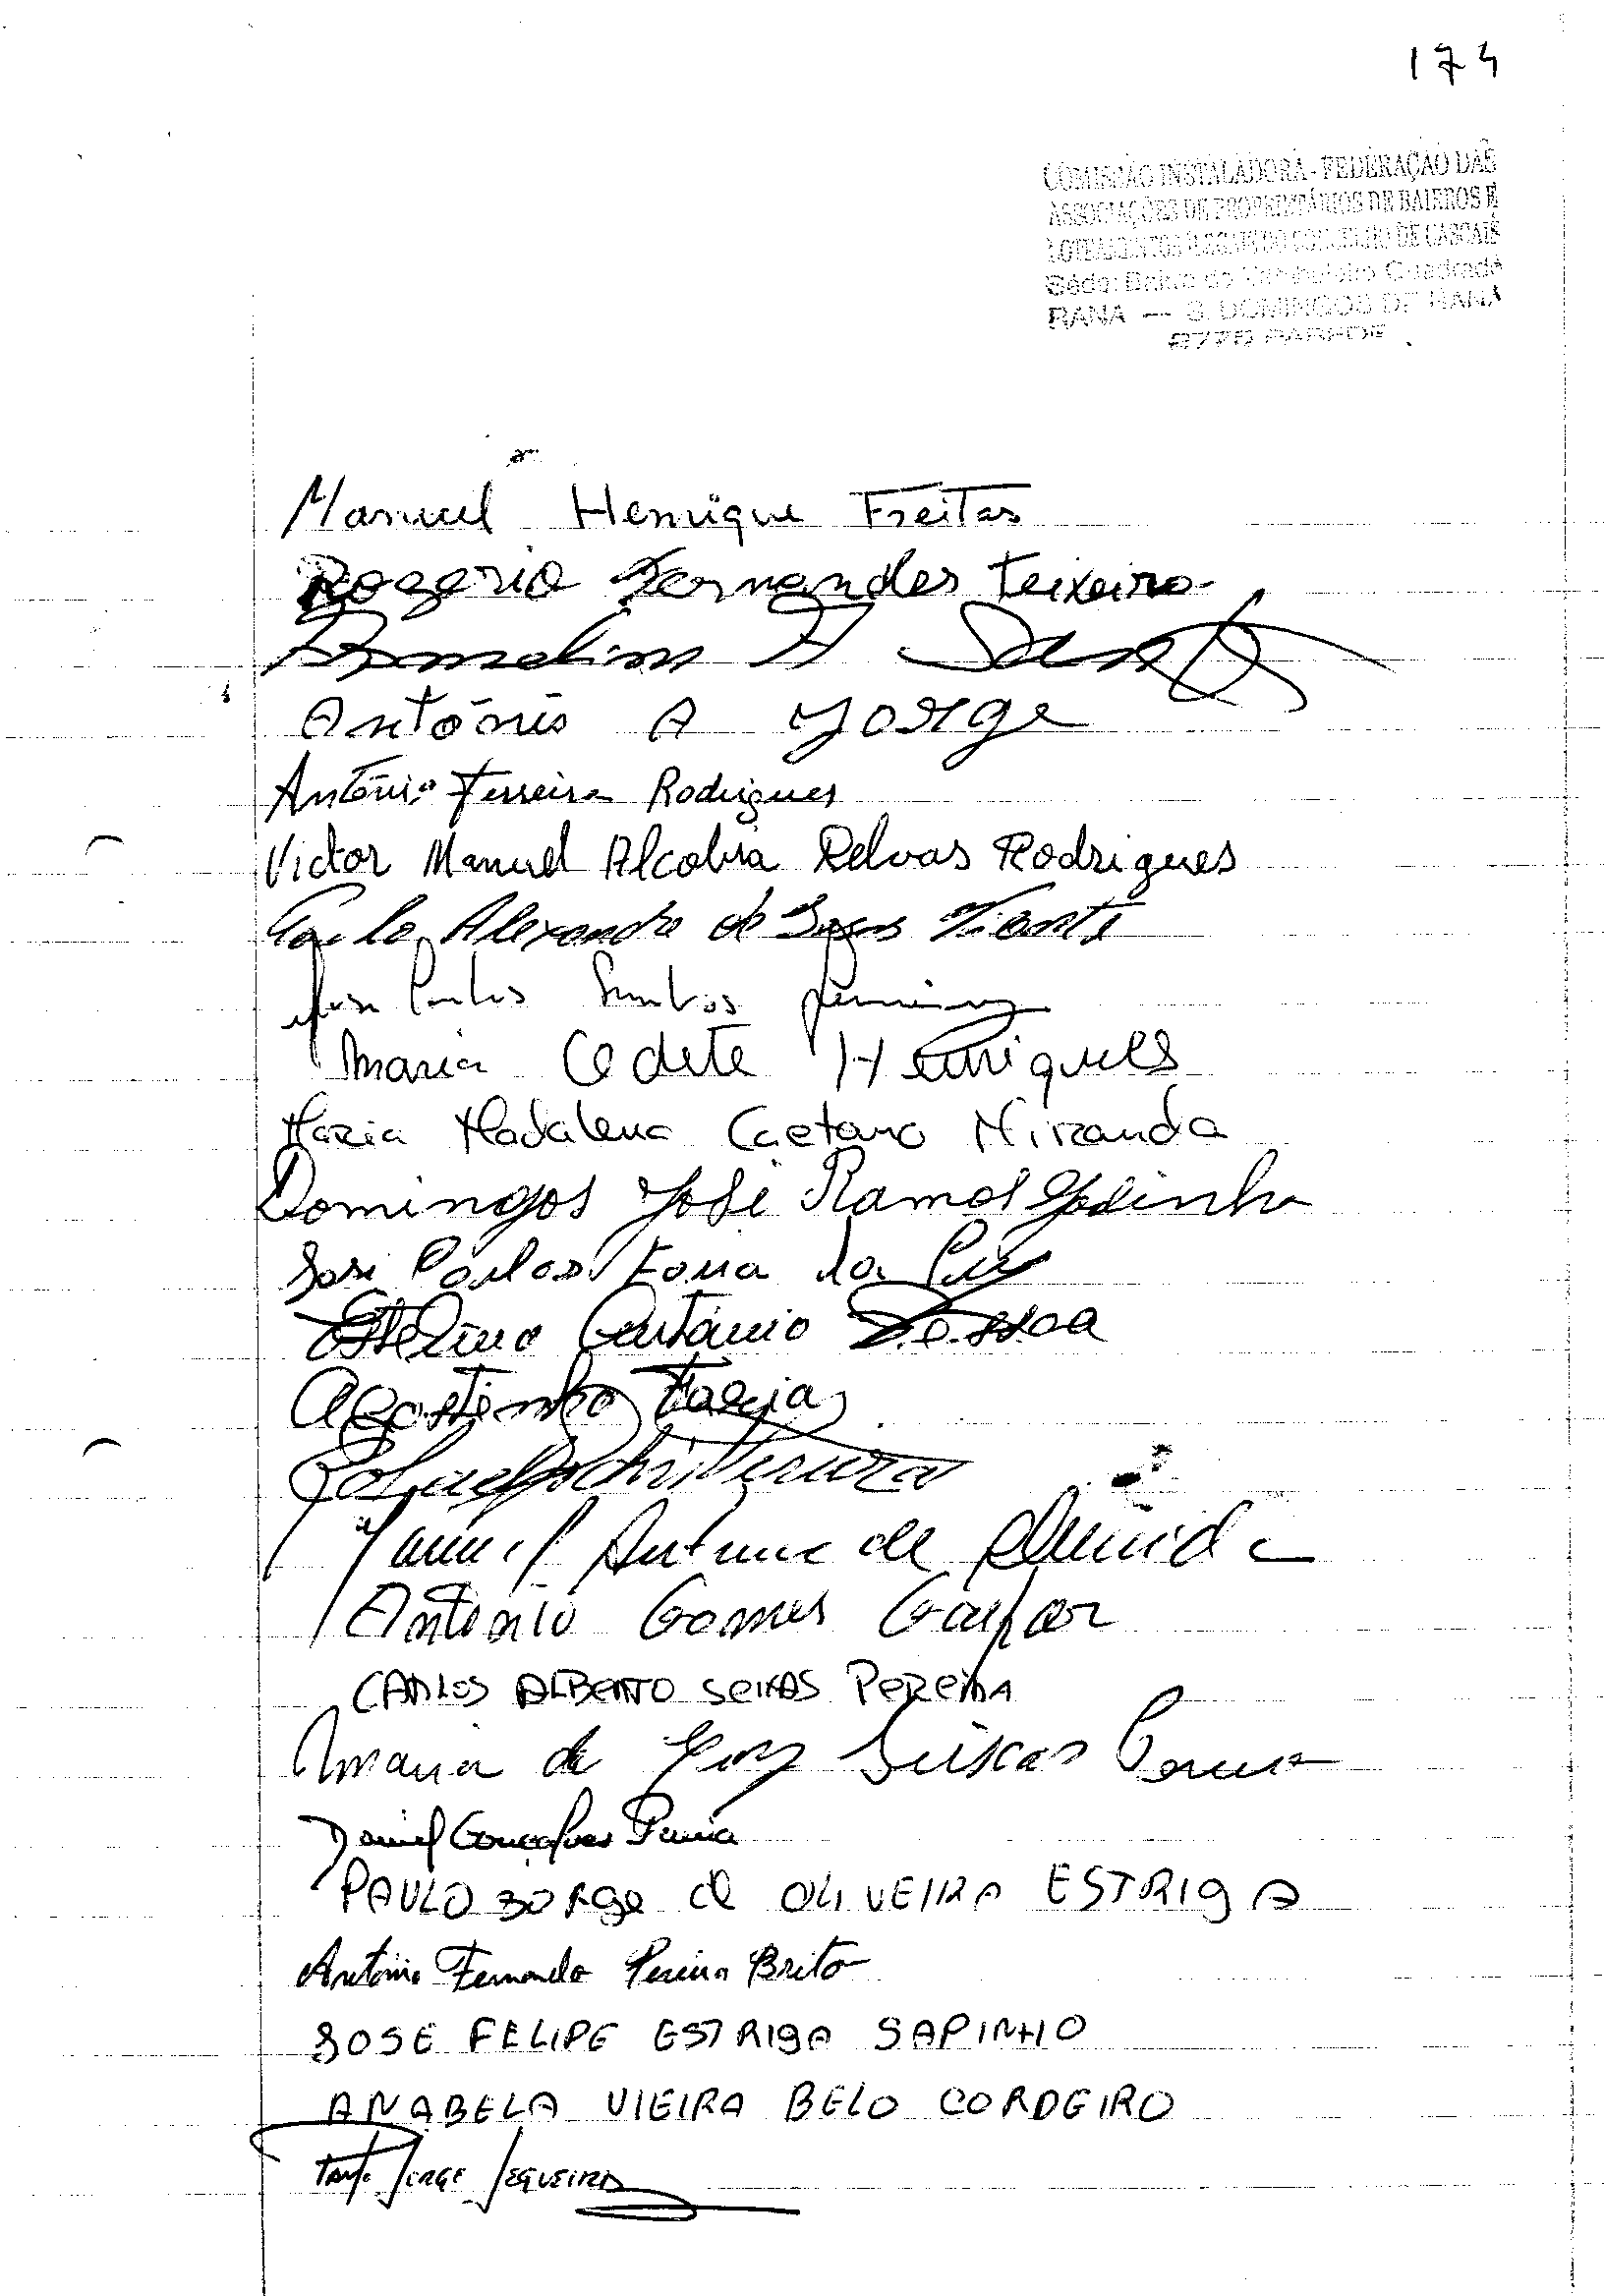 174
COMISSÃO INSTALADORA - FEDERAÇÃO DAS
ASSOCIAÇÕES DE PROPRIETÁRIOS DE BAIRROS E
LOTEAMENTOS ILEGAIS DO CONCELHO DE CASCAIS
Séde: Bairro do Quadrado
RANA — S. DOMINGOS DE RANA
PAREDE
Manuel Henrique Freitas
Rogerio Fernandes Teixeira
António A Jorge
António Ferreira Rodrigues
Victor Manuel Alcobia Relvas Rodrigues
Alexandre de
José Carlos Santos
Maria Odete Henriques
Maria Madalena Caetano Miranda
Domingos José Ramos Godinho
José Carlos da
Pessoa
Agostinho Farias
Manuel Antunes de Almeida
António Gomes Gaspar
CARLOS ALBERTO SEIXAS PEREIRA
Maria de Seixas
Daniel Gonçalves
PAULO JORGE de OLIVEIRA ESTRIGA
António Fernando Pereira Brito
JOSE FELIPE ESTRIGA SAPINHO
ANABELA VIEIRA BELO CORDEIRO
JORGE SEQUEIRA